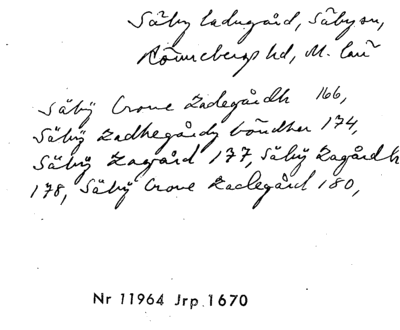 Säby ladugård, Säby sn,
Rönnebergs hd, M. län
Säbÿ Crone Ladegårdh 166,
Säbÿ Ladhegårdz böndher 174,
Säbÿ Lagård 177, Säbÿ Lagårdh
178, Säbÿ Crone Ladegård 180,
Nr 11964 Jrp. 1670